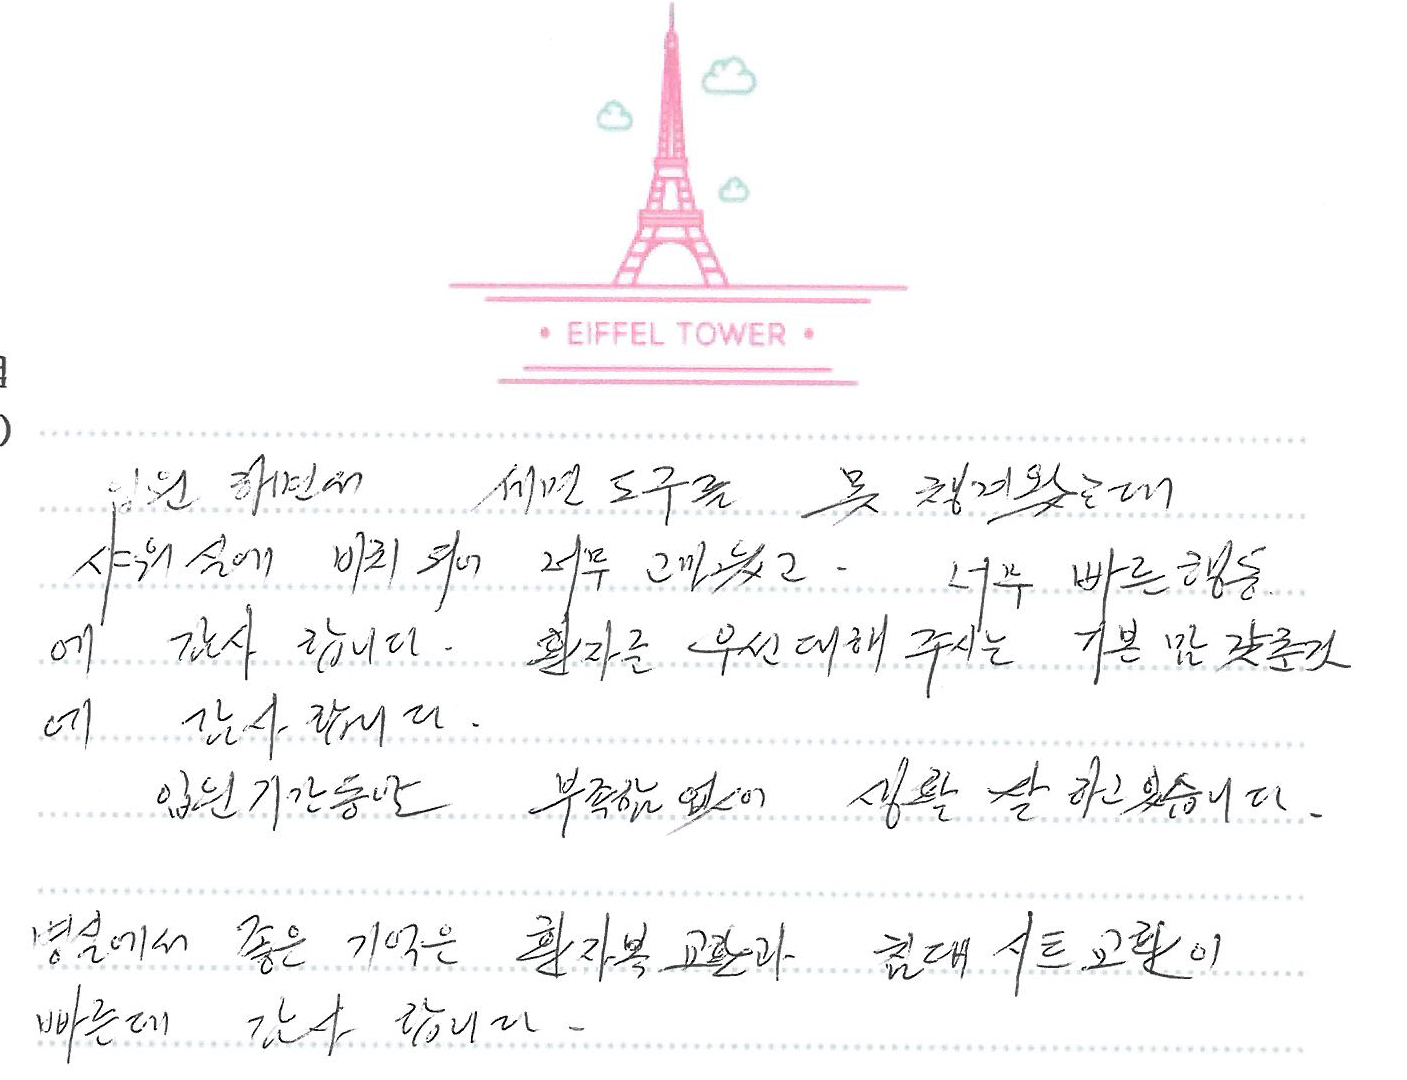 • EIFFEL TOWER •
입원 하면서 세면 도구를 못 챙겨왔는데
샤워실에 비치 되어 너무 고마웠고. 너무 빠른 행동
에 감사 합니다. 환자를 우선 대해 주시는 기본 맘 갖춘것
에 감사 합니다.
입원기간동안 부족함 없이 생활 잘 하고있습니다.
병실에서 좋은 기억은 환자복 교환과 침대 시트 교환이
빠른데 감사 합니다.